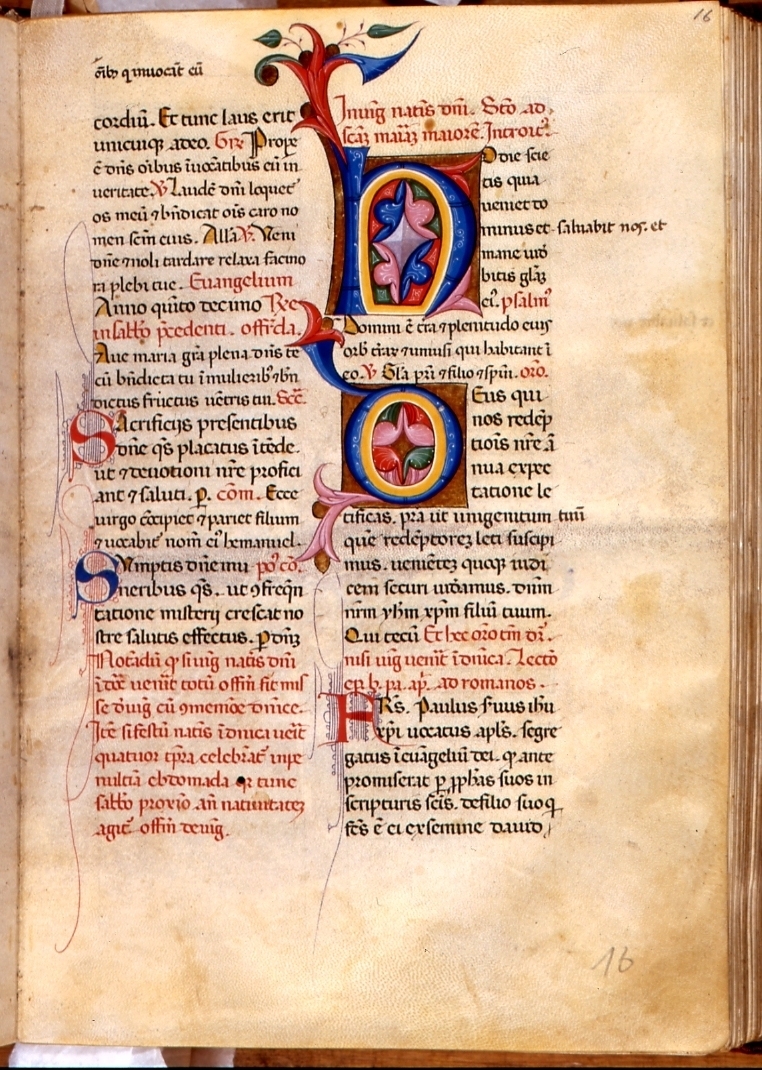 16
oīb₃ q inuocāt eū
cordiū. Et tunc laus erit
unicuiq₃ adeo. Gr̄. Prope
ē dn̄s oībus īuocātibus eū in
ueritate. V̄. Laudē dn̄i loquet᷑
os meū ⁊ bn̄dicat oīs caro no
men scm̄ eius. Allā. V̄. Veni
dn̄e ⁊ noli tardare relaxa facino
ra plebi tue. Euangelium
Anno quīto decimo Re
in sabb̄o p̄cedenti. offr̄da.
Aue maria gr̄a plena dn̄s te
cū bn̄dicta tu ī mulierib₃ ⁊ bn̄
dictus fructus uētris tui. Secr̄.
Sacrificijs presentibus
dn̄e qs̄ placatus ītēde.
ut ⁊ deuotioni nr̄e profici
ant ⁊ saluti. p̄. com̄. Ecce
uirgo cōcipiet ⁊ pariet filium
⁊ uocabit᷑ nom̄ ei᷒ hemanuel.
Sumptis dn̄e mu po᷒ cō.
neribus qs̄. ut ꝯfreq̄n
tatione misterij crescat no
stre salutis effectus. P dn̄₃
Notādū ꝙ si uiḡ natīs dn̄i
ī dc̄ā uenīt totū offm̄ fit mis
se d̄uiḡ cū ꝯmemōe dn̄ice.
Itē si festū natīs ī dn̄ica ueīt
quatuor tp̄ra celebrāt᷑ inpe
nultīa ebdomada qr tunc
sabb̄o proxīo an̄ natiuitatez
agit᷑ offm̄ de uiḡ.
In uiḡ natīs dn̄i. Stō. ad
scāz mar̄iāz maiorē. Introit᷒.
Hodie scie
tis quia
ueniet do
minus et saluabit nos. et
mane uid̄
bitis glāz
ei᷒. psalm᷒
Domini ē tr̄a ⁊ plenitudo eius
orb᷒ tr̄ar̄ ⁊ uniusi qui habitant ī
eo. V̄. Gl̄a pr̄i ⁊ filio ⁊ sp̄ui. oro.
Deus qui
nos redēp
tiois nr̄e ā
nua expec
tatione le
tificas. pr̄a ut unigenitum tuū
quē redēptorez leti suscipi
mus. uenietēz quoq₃ iudi
cem securi uideamus. dn̄m
nr̄m yhm̄ xp̄m filiū tuum.
Qui tecū. Et hec oro tm̄ dr̄.
nisi uiḡ uenīt ī dn̄ica. Lectō
ep̄. b̄. pa. ap̄. ad romanos.
FRs̄. Paulus s̄uus ihū
xp̄i uocatus apl̄s. segre
gatus ī euāgeliū dei. q᷒ ante
promiserat p p̄phās suos in
scripturis scīs. de filio suo q
fc̄s ē ei ex semine dauid
16